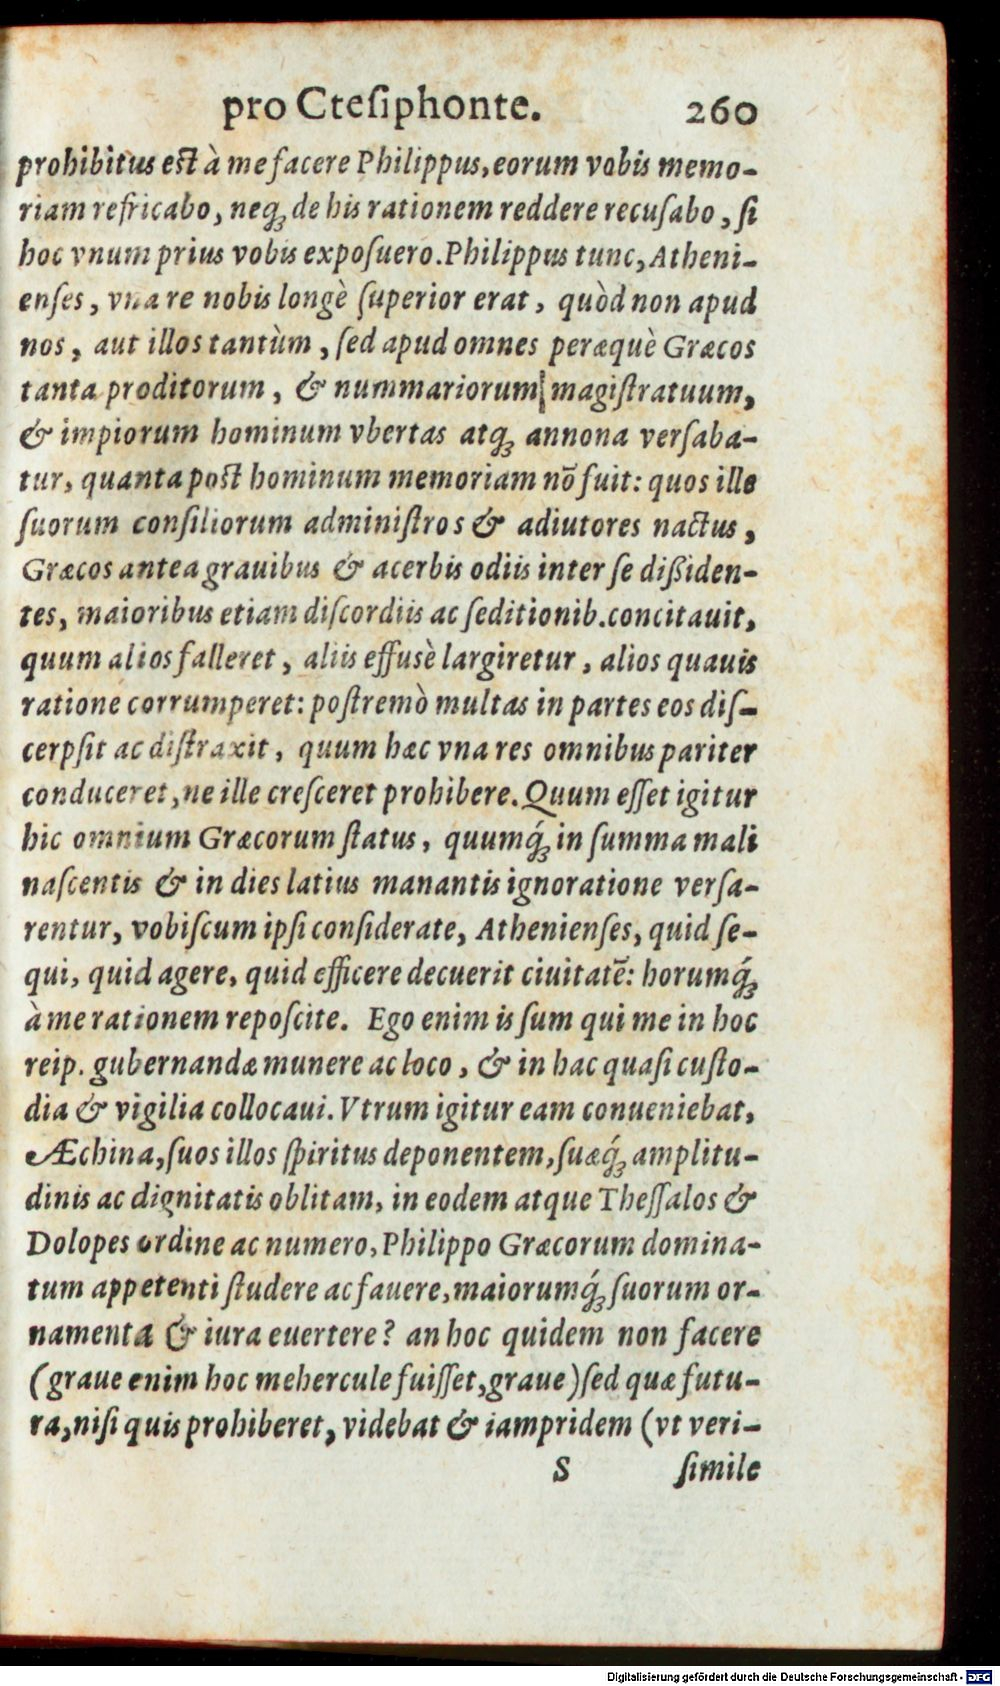 pro Cteſiphonte. 260
prohibitus est à me facere Philippus, eorum vobis memo-
riam refricabo, neq; de his rationem reddere recuſabo, ſi
hoc vnum prius vobis expoſuero. Philippus tunc, Atheni-
enſes, vna re nobis longè ſuperior erat, quòd non apud
nos, aut illos tantùm, ſed apud omnes peræquè Græcos
tanta proditorum, & nummariorum magiſtratuum,
& impiorum hominum vbertas atq; annona verſaba-
tur, quanta post hominum memoriam nō fuit: quos ille
ſuorum conſiliorum adminiſtros & adiutores nactus,
Græcos antea grauibus & acerbis odiis inter ſe dißiden-
tes, maioribus etiam diſcordiis ac ſeditionib. concitauit,
quum alios falleret, aliis effuſè largiretur, alios quauis
ratione corrumperet: poſtremò multas in partes eos diſ-
cerpſit ac diſtraxit, quum hæc vna res omnibus pariter
conduceret, ne ille creſceret prohibere. Quum eſſet igitur
hic omnium Græcorum ſtatus, quumq́; in ſumma mali
naſcentis & in dies latius manantis ignoratione verſa-
rentur, vobiſcum ipſi conſiderate, Athenienſes, quid ſe-
qui, quid agere, quid efficere decuerit ciuitatē: horumq́;
à me rationem repoſcite. Ego enim is ſum qui me in hoc
reip. gubernandæ munere ac loco, & in hac quaſi cuſto-
dia & vigilia collocaui. Vtrum igitur eam conueniebat,
Æchina, ſuos illos ſpiritus deponentem, ſuæq́; amplitu-
dinis ac dignitatis oblitam, in eodem atque Theſſalos &
Dolopes ordine ac numero, Philippo Græcorum domina-
tum appetenti ſtudere ac fauere, maiorumq́; ſuorum or-
namenta & iura euertere? an hoc quidem non facere
(graue enim hoc mehercule fuiſſet, graue) ſed quæ futu-
ra, niſi quis prohiberet, videbat & iampridem (vt veri-
S ſimile
Digitalisierung gefördert durch die Deutsche Forschungsgemeinschaft - DFG